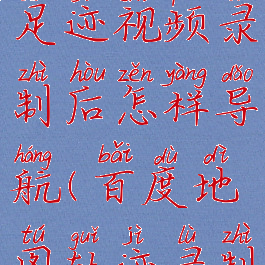 足迹视频录
zhì hòu zěn yàng dǎo
制后怎样导
háng bǎi dù dì
航(百度地
tú guǐ jì lù zhì
图轨迹录制